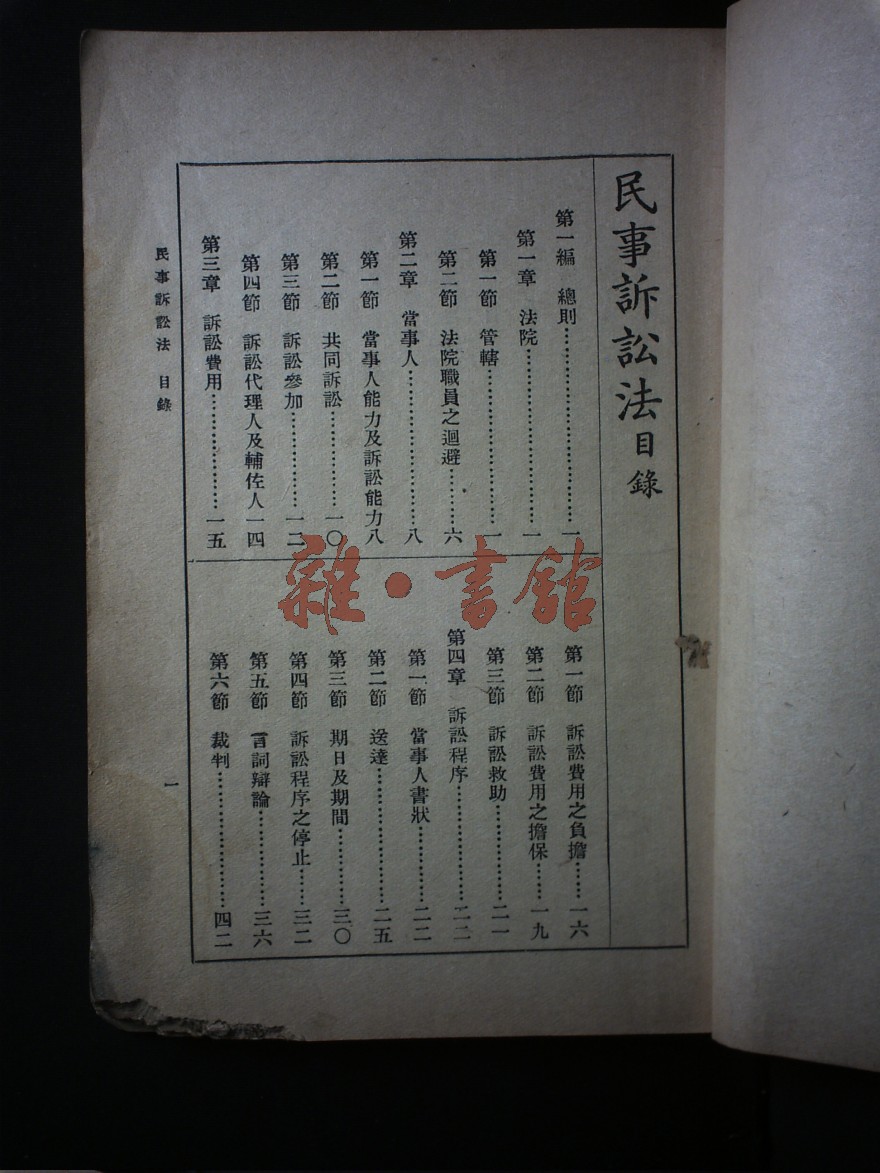 民事訴訟法目錄
第一編 總則…………………一
第一章 法院…………………一
第一節 管轄…………………一
第二節 法院職員之迴避………六
第二章 當事人…………………八
第一節 當事人能力及訴訟能力八
第二節 共同訴訟……………一〇
第三節 訴訟參加……………一二
第四節 訴訟代理人及輔佐人一四
第三章 訴訟費用……………一五
第一節 訴訟費用之負擔……一六
第二節 訴訟費用之擔保……一九
第三節 訴訟救助……………二一
第四章 訴訟程序……………二二
第一節 當事人書狀…………二二
第二節 送達…………………二五
第三節 期日及期間…………三〇
第四節 訴訟程序之停止……三二
第五節 言詞辯論……………三六
第六節 裁判…………………四二
民事訴訟法 目錄
一
雜·書館